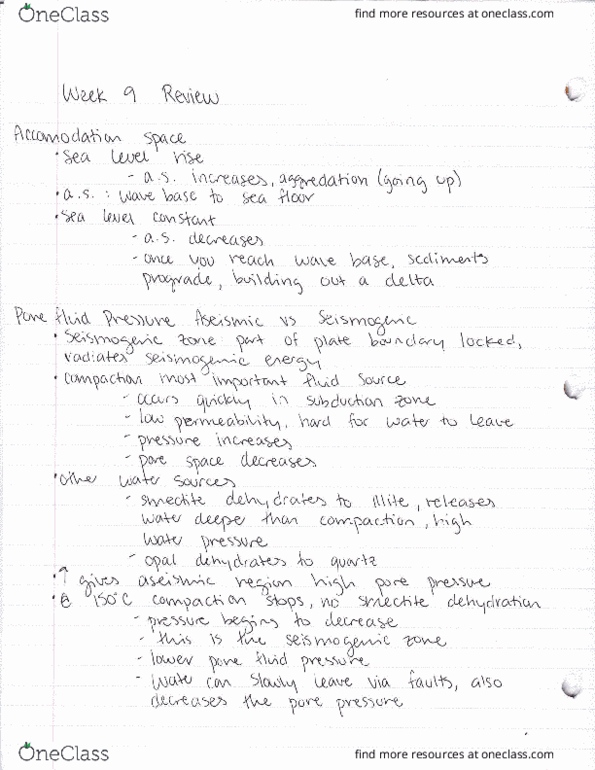 OneClass
find more resources at oneclass.com
Week 9 Review
Accomodation space
• Sea level rise
- a.s. increases, aggredation (going up)
• a.s. : wave base to sea floor
• Sea level constant
- a.s. decreases
- once you reach wave base, sediments
prograde, building out a delta
Pore fluid Pressure Aseismic vs Seismogenic
• Seismogenic zone part of plate boundary locked,
radiates seismogenic energy
• compaction most important fluid source
- occurs quickly in subduction zone
- low permeability, hard for water to leave
- pressure increases
- pore space decreases
• other water sources
- smectite dehydrates to illite, releases
water deeper than compaction, high
water pressure
- opal dehydrates to quartz
• ↑ gives aseismic region high pore pressure
• @ 150°C compaction stops, no smectite dehydration
- pressure begins to decrease
- this is the seismogenic zone
- lower pore fluid pressure
- water can slowly leave via faults, also
decreases the pore pressure
OneClass
find more resources at oneclass.com